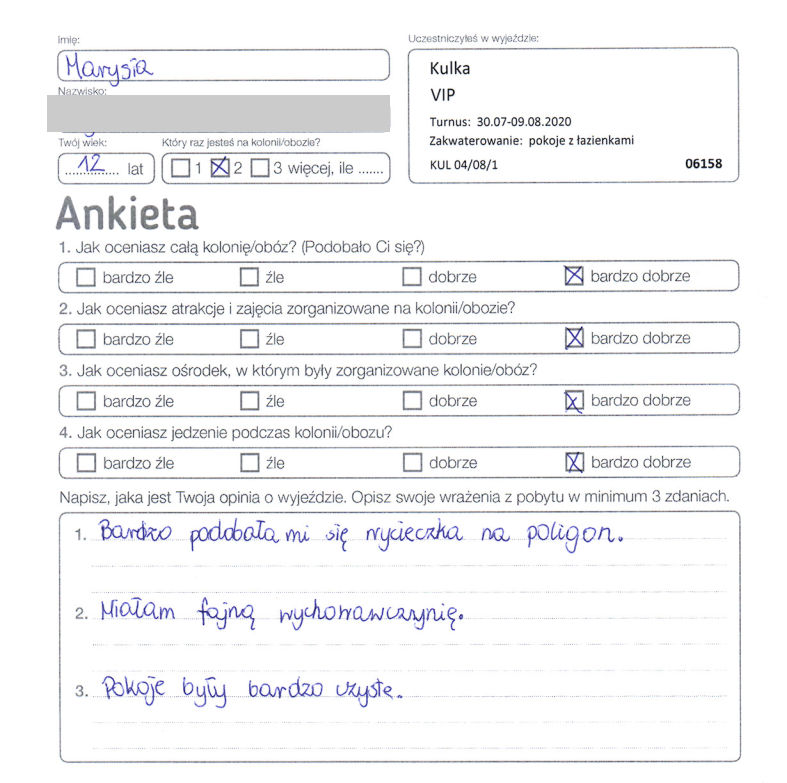 Imię:
Marysia
Nazwisko:
Twój wiek:
12 lat
Który raz jesteś na kolonii/obozie?
1 2 3 więcej, ile .......
Uczestniczyłeś w wyjeździe:
Kulka
VIP
Turnus: 30.07-09.08.2020
Zakwaterowanie: pokoje z łazienkami
KUL 04/08/1 06158
Ankieta
1. Jak oceniasz całą kolonię/obóz? (Podobało Ci się?)
bardzo źle źle dobrze bardzo dobrze
2. Jak oceniasz atrakcje i zajęcia zorganizowane na kolonii/obozie?
bardzo źle źle dobrze bardzo dobrze
3. Jak oceniasz ośrodek, w którym były zorganizowane kolonie/obóz?
bardzo źle źle dobrze bardzo dobrze
4. Jak oceniasz jedzenie podczas kolonii/obozu?
bardzo źle źle dobrze bardzo dobrze
Napisz, jaka jest Twoja opinia o wyjeździe. Opisz swoje wrażenia z pobytu w minimum 3 zdaniach.
1. Bardzo podobała mi się wycieczka na poligon.
2. Miałam fajną wychowawczynię.
3. Pokoje były bardzo czyste.